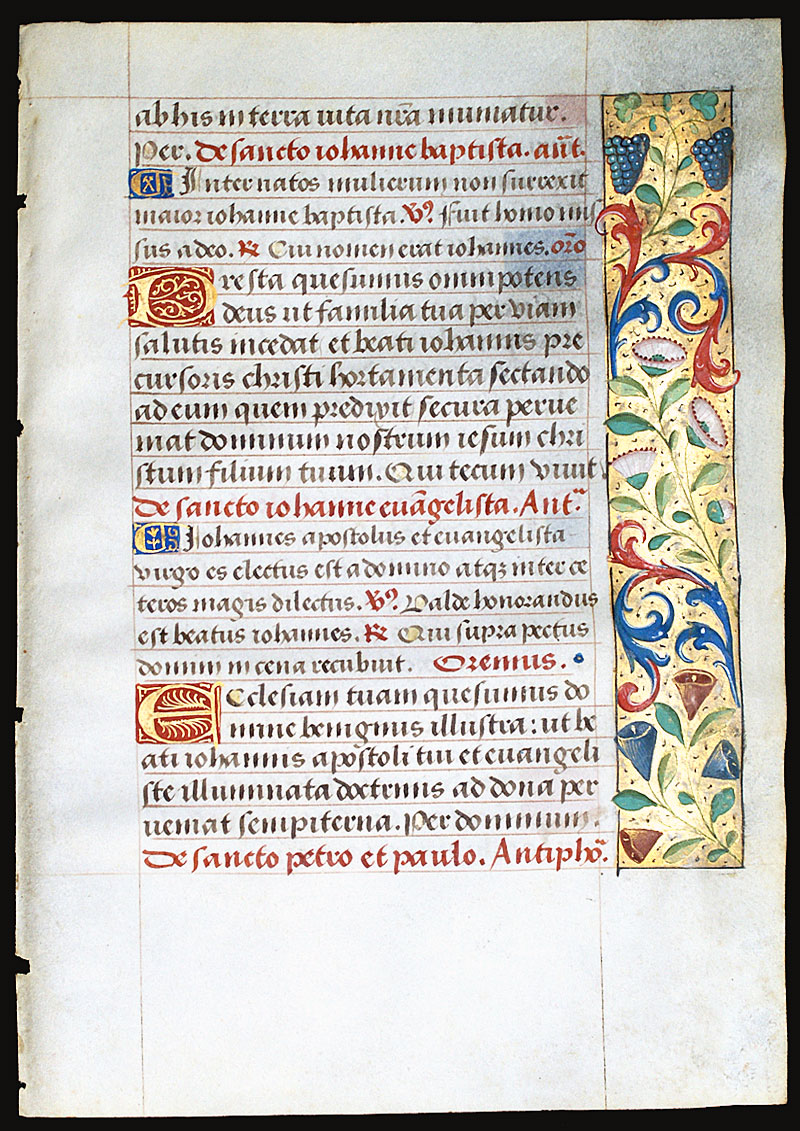 ab his in terra vita nr̃a muniatur.
Per. De sancto iohanne baptista. añt.
Inter natos mulierum non surrexit
maior iohanne baptista. V̕. Fuit homo mis
sus a deo. R Cui nomen erat iohannes. orõ
Presta quesumus omnipotens
deus ut familia tua per viam
salutis incedat et beati iohannis pre
cursoris christi hortamenta sectando
ad eum quem predixit secura perve
niat dominum nostrum iesum chri
stum filium tuum. Qui tecum vivit
De sancto iohanne euãgelista. Ant.
Iohannes apostolus et euangelista
virgo es electus est a domino atqz inter ce
teros magis dilectus. V̕. Valde honorandus
est beatus iohannes. R Qui supra pectus
domini in cena recubuit. Oremus.
Ecclesiam tuam quesumus do
mine benignus illustra: ut be
ati iohannis apostoli tui et euangeli
ste illuminata doctrinis ad dona per
veniat sempiterna. Per dominum.
De sancto petro et paulo. Antiphõ.